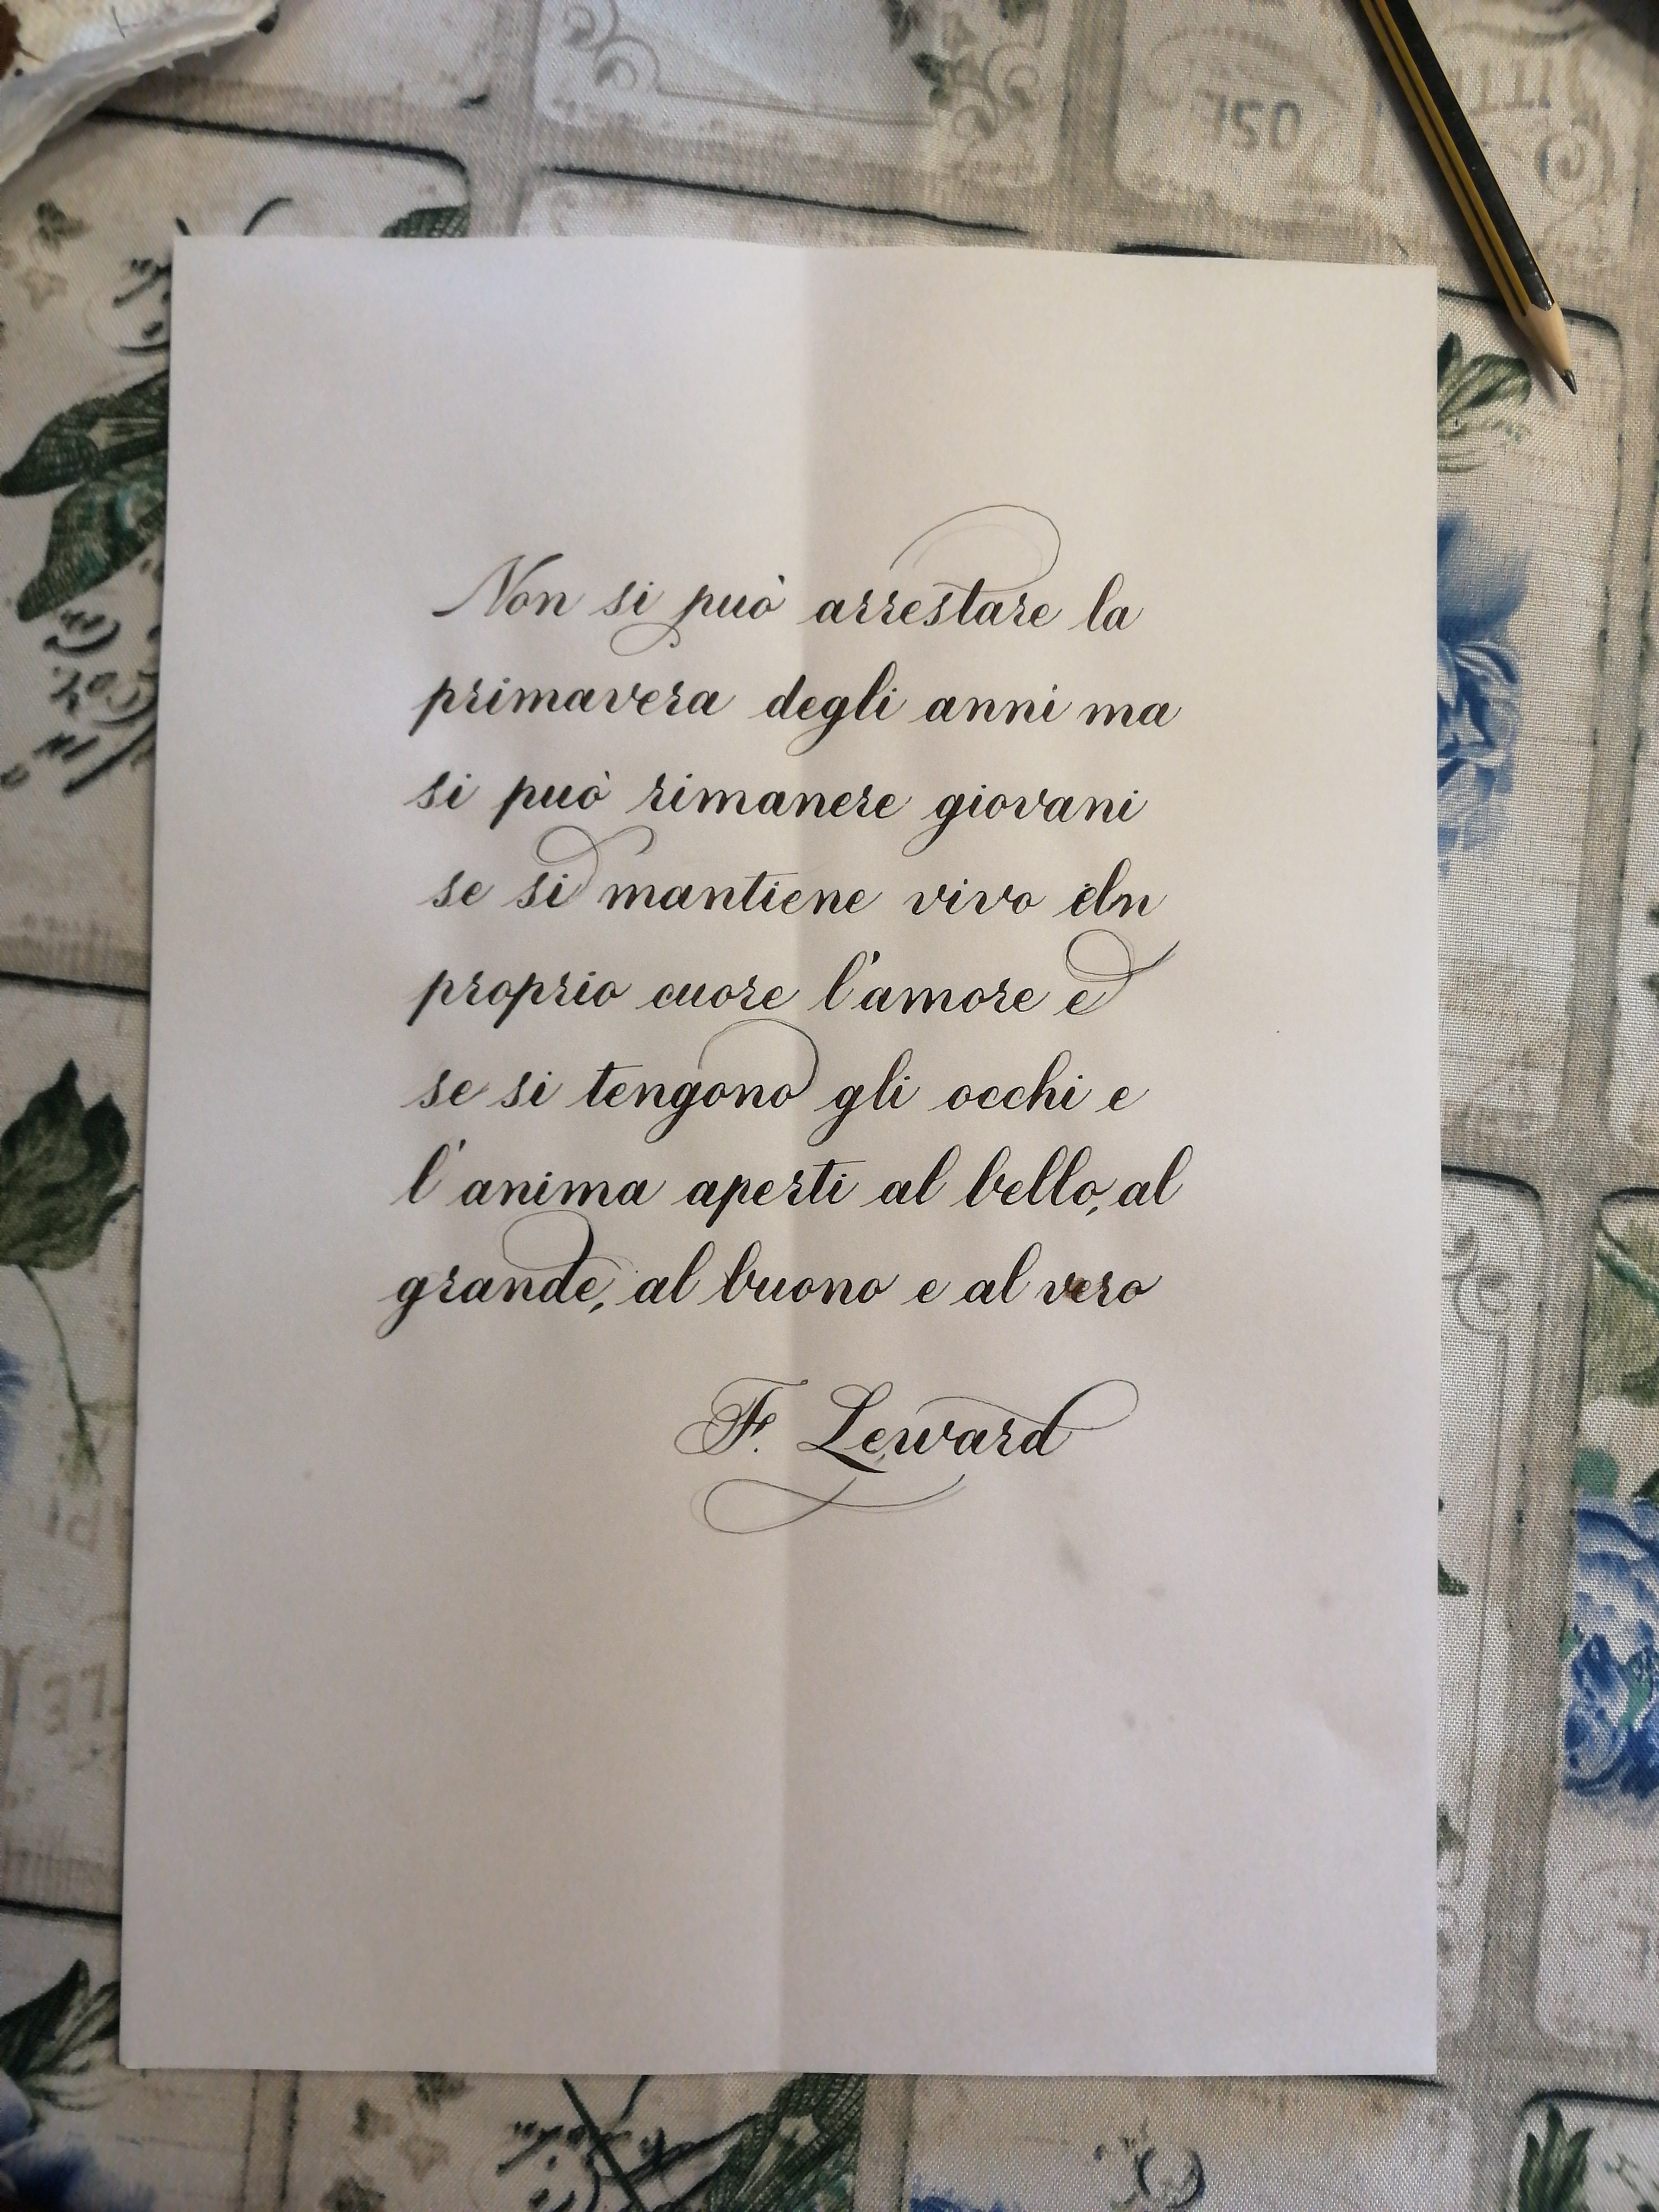 Non si può arrestare la
primavera degli anni ma
si può rimanere giovani
se si mantiene vivo
proprio cuore l'amore e
se si tengono gli occhi e
l'anima aperti al bello, al
grande, al buono e al vero
F. Leward